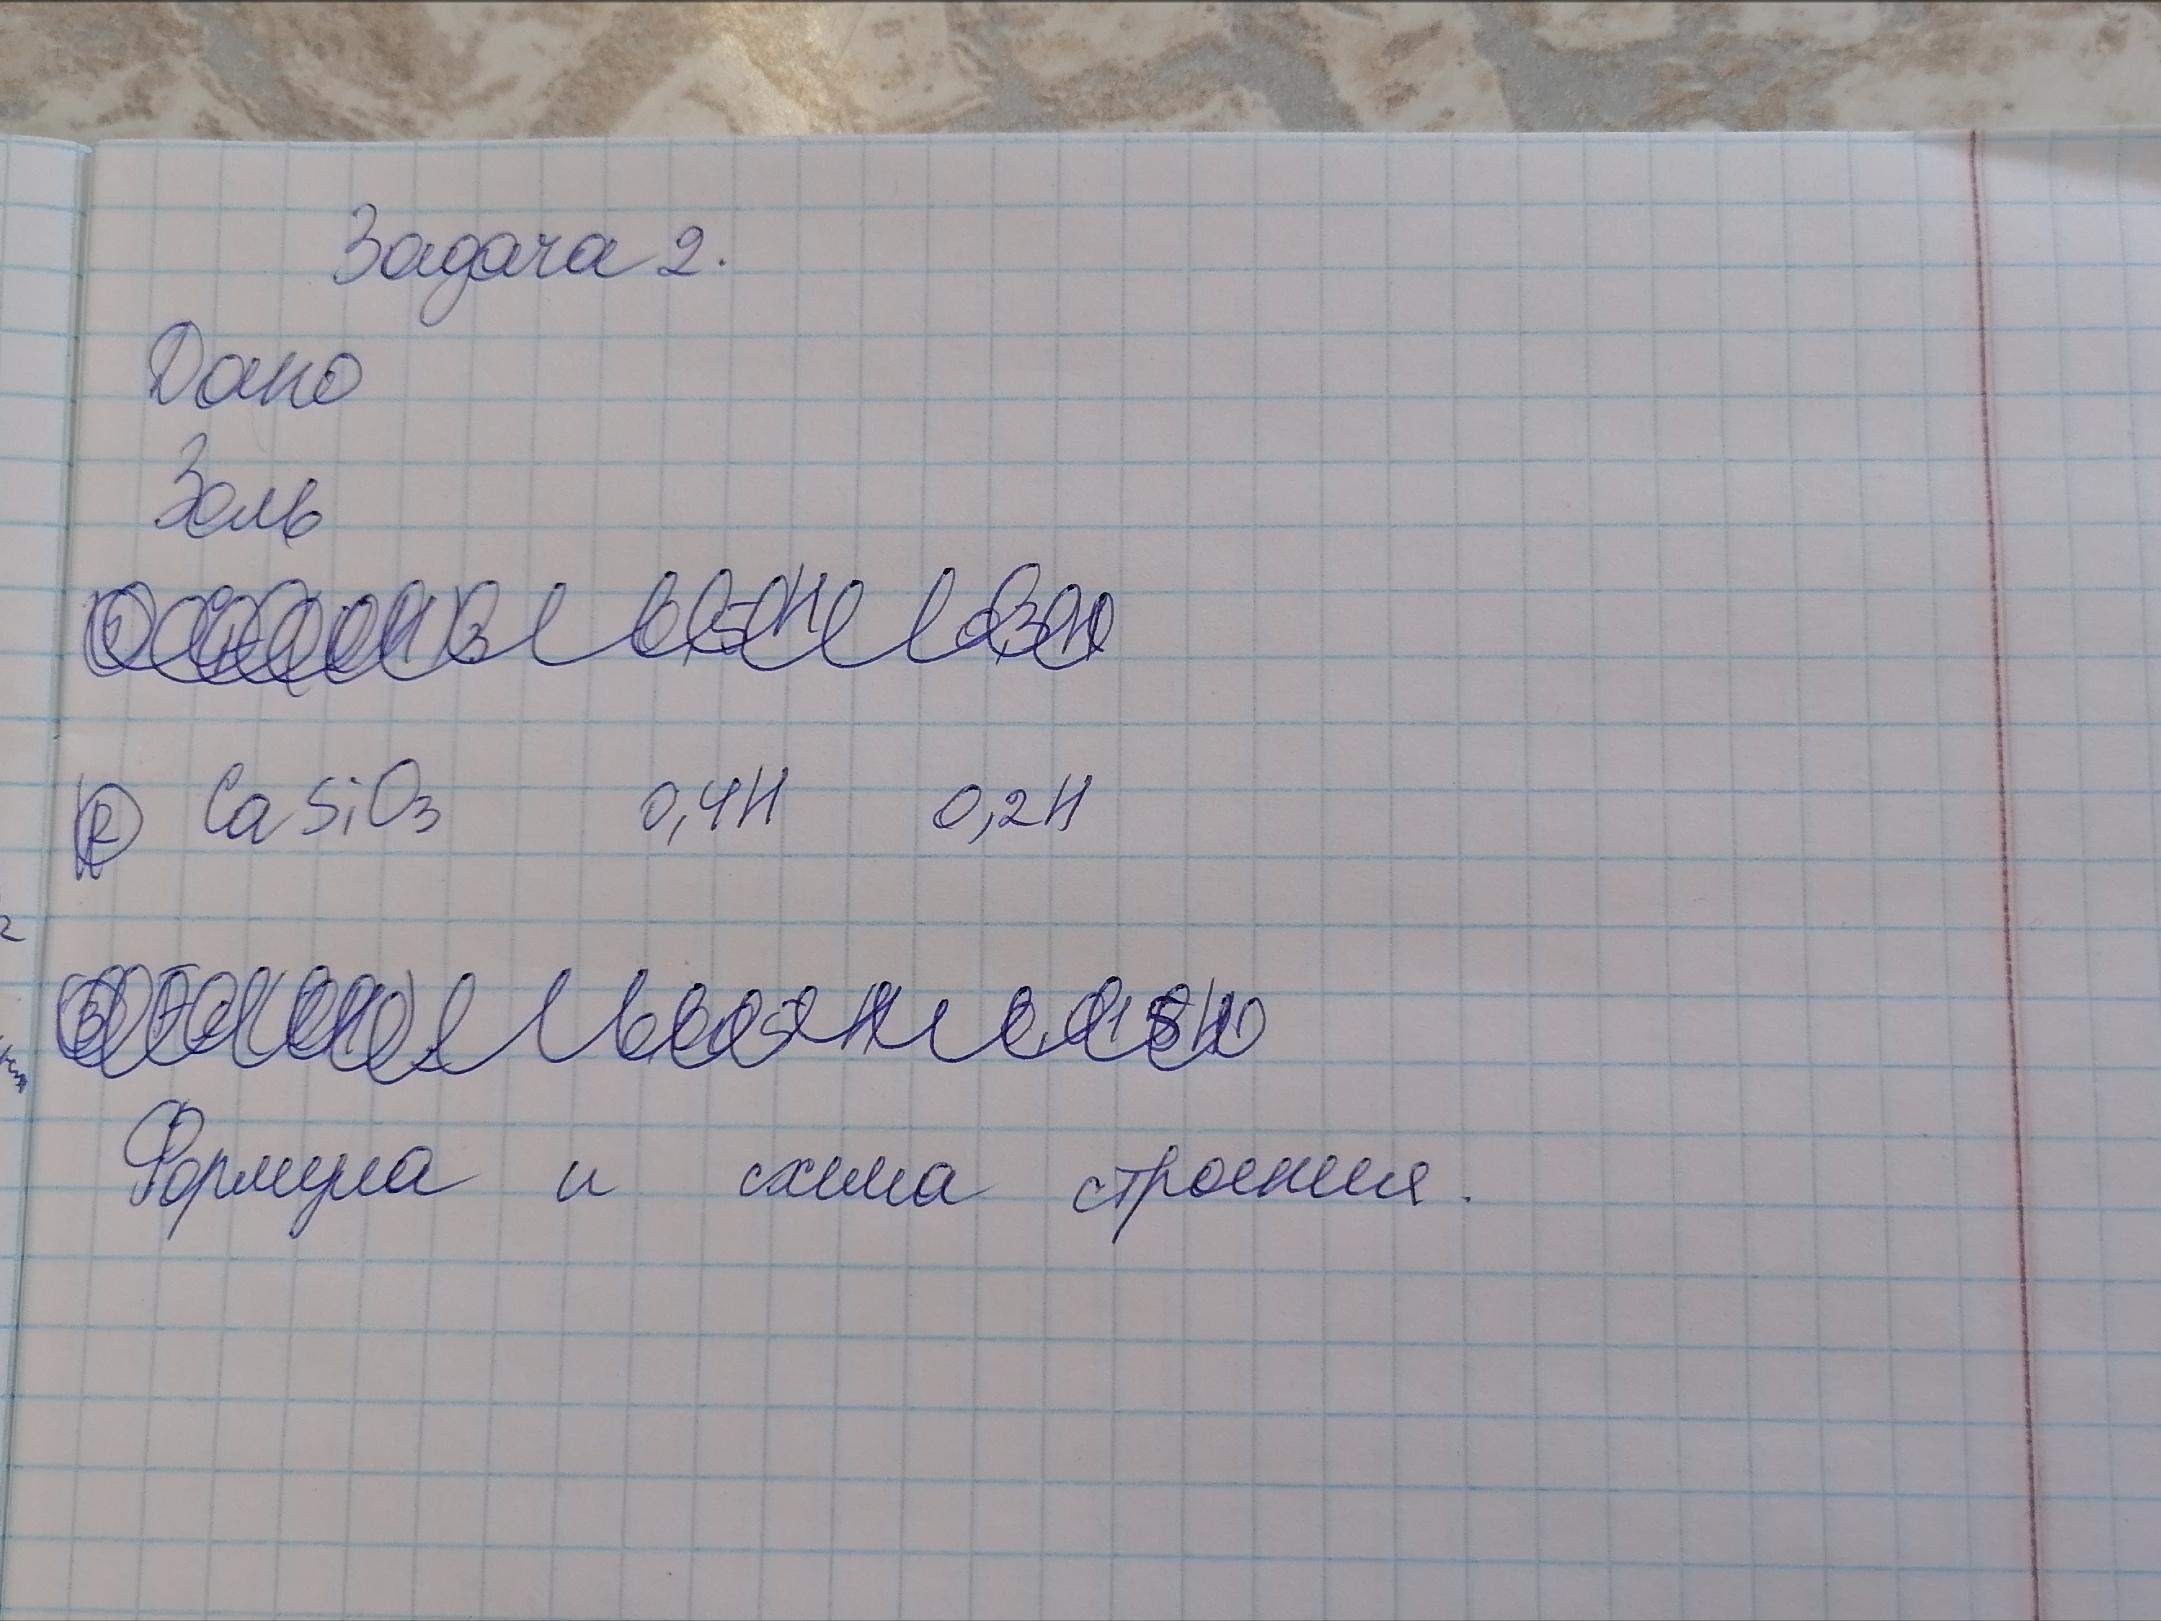 Задача 2.
Дано
Золь
2 CaSiO3 0,4Н 0,2Н
Формула и схема строения.